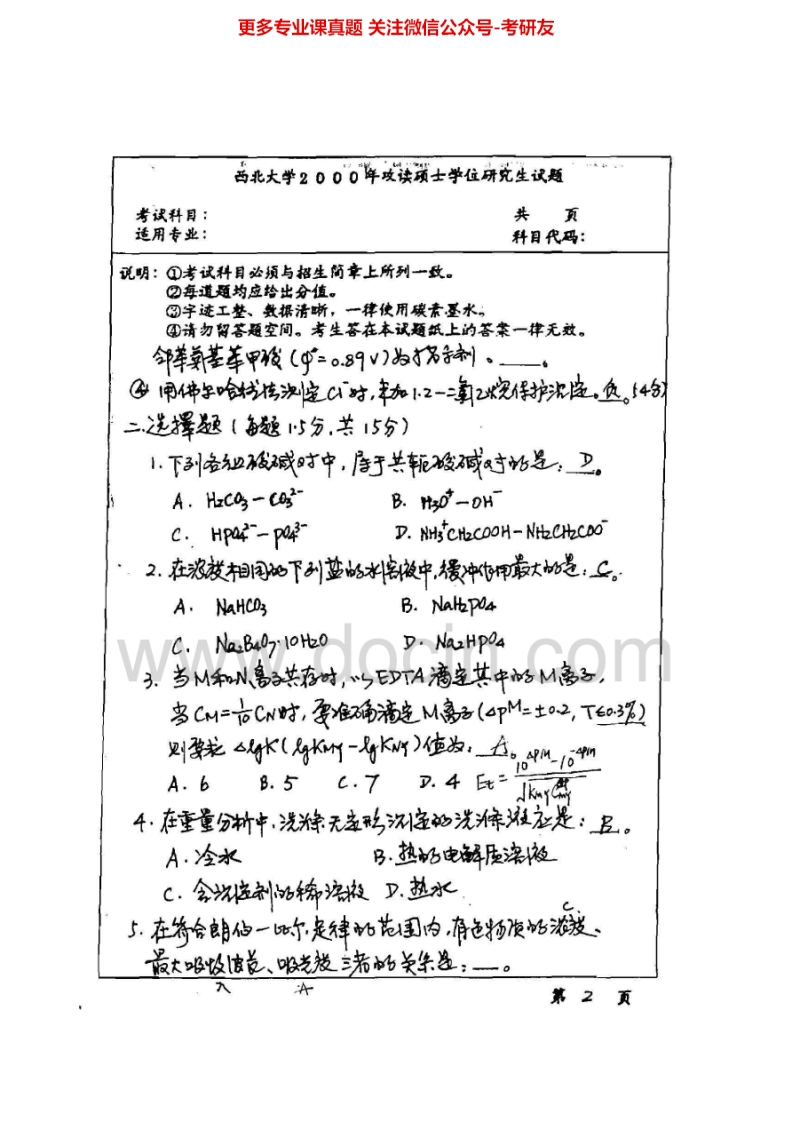 更多专业课真题 关注微信公众号-考研友
西北大学2000年攻读硕士学位研究生试题
考试科目: 共 页
适用专业: 科目代码:
说明: ①考试科目必须与招生简章上所列一致。
②每道题均应给出分值。
③字迹工整、数据清晰,一律使用碳素墨水。
④请勿留答题空间。考生答在本试题纸上的答案一律无效。
邻苯氨基苯甲酸(φ°=0.89V)为指示剂。____。
④ 用佛尔哈特法测定Cl⁻时,未加1.2-二氯乙烷保护沉淀。负。(4分)
二.选择题(每题1.5分,共15分)
1.下列各组酸碱对中,属于共轭酸碱对的是: D。
A. H₂CO₃-CO₃²⁻ B. H₃O⁺-OH⁻
C. HPO₄²⁻-PO₄³⁻ D. NH₃⁺CH₂COOH-NH₂CH₂COO⁻
2.在浓度相同的下列盐的水溶液中,缓冲作用最大的是: C。
A. NaHCO₃ B. NaH₂PO₄
C. Na₂B₄O₇·10H₂O D. Na₂HPO₄
www.docin.com
3. 当M和N离子共存时,以EDTA滴定其中的M离子,
当CM=1/10 CN时,要准确滴定M离子(ΔpM=±0.2, T≤0.3%)
则要求 ΔlgK(lgKMY-lgKNY)值为: A。
A. 6 B. 5 C. 7 D. 4 Et=(10^ΔpM-10^-ΔpM)/√KMY
4.在重量分析中,洗涤无定形沉淀的洗涤液应是: B。
A.冷水 B.热的电解质溶液
C.含沉淀剂的稀溶液 D.热水
C.
5.在符合朗伯-比尔定律的范围内,有色物质的浓度、
最大吸收波长、吸光度三者的关系是: __。
λ A
第 2 页